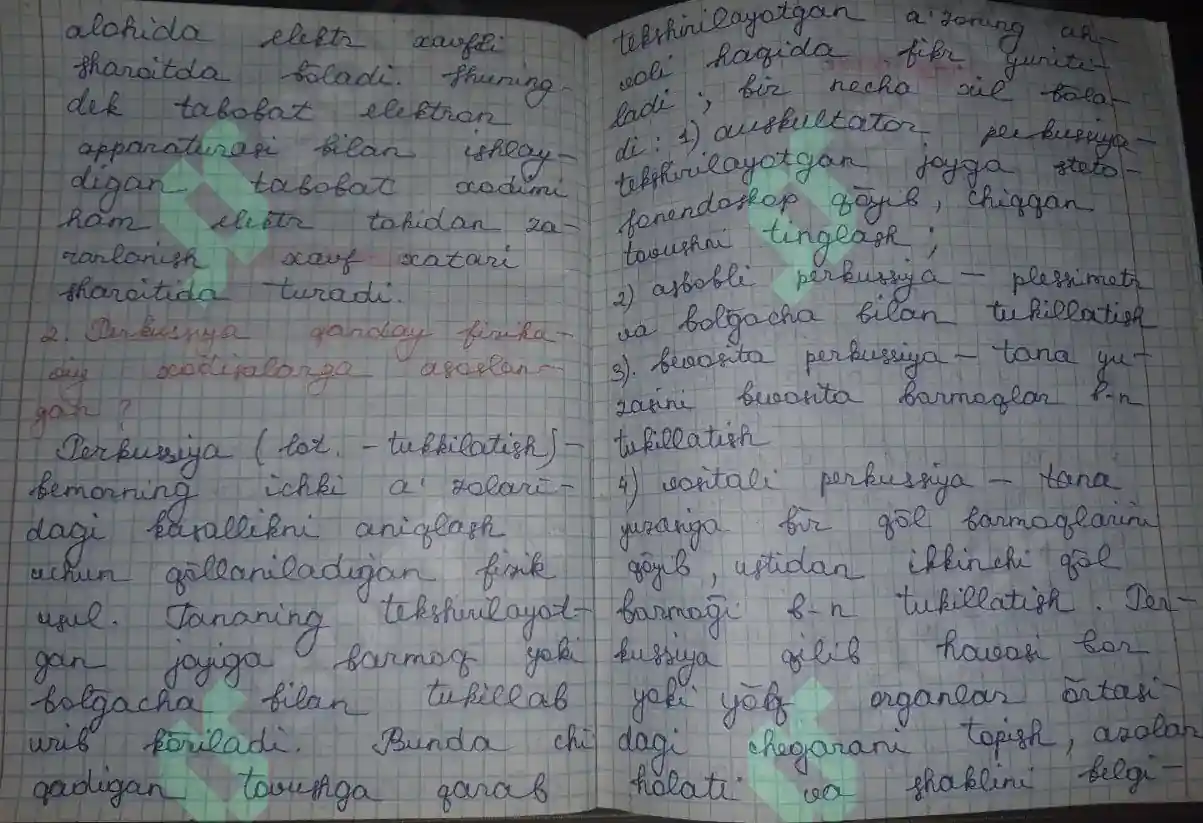 alohida elektr xavfli
sharoitda bōladi. Shuning-
dek tabobat elektron
apparaturasi bilan ishlay-
digan tabobat xodimi
ham elektr tokidan za-
rarlanish xavf xatari
sharoitida turadi.
2. Perkussiya qanday fizika-
viy xodisalarga asoslan-
gan?
Perkussiya (lot. - tukkilatish) -
bemorning ichki a'zolari-
dagi kasallikni aniqlash
uchun qōllaniladigan fizik
usul. Tananing tekshirilayot-
gan joyiga barmoq yoki
bolḡacha bilan tukillab
urib kōriladi. Bunda chi
qadigan tovushga qarab
tekshirilayotgan a'zoning ah-
voli haqida fikr yuriti-
ladi; bir necha xil bōla-
di: 1) auskultator perkussiya-
tekshirilayotgan joyga steto-
fonendoskop qōyib, chiqqan
tovushni tinglash;
2) asbobli perkussiya - plessimetr
va bolḡacha bilan tukillatish
3). bevosita perkussiya - tana yu-
zasini bevosita barmoqlar b-n
tukillatish
4) vositali perkussiya - tana
yuzasiga bir qōl barmoqlarini
qōyib, ustidan ikkinchi qōl
barmoḡi b-n tukillatish. Per-
kussiya qilib havosi bor
yoki yōq organlar ōrtasi-
dagi chegarani topish, azolar
holati va shaklini belgi-